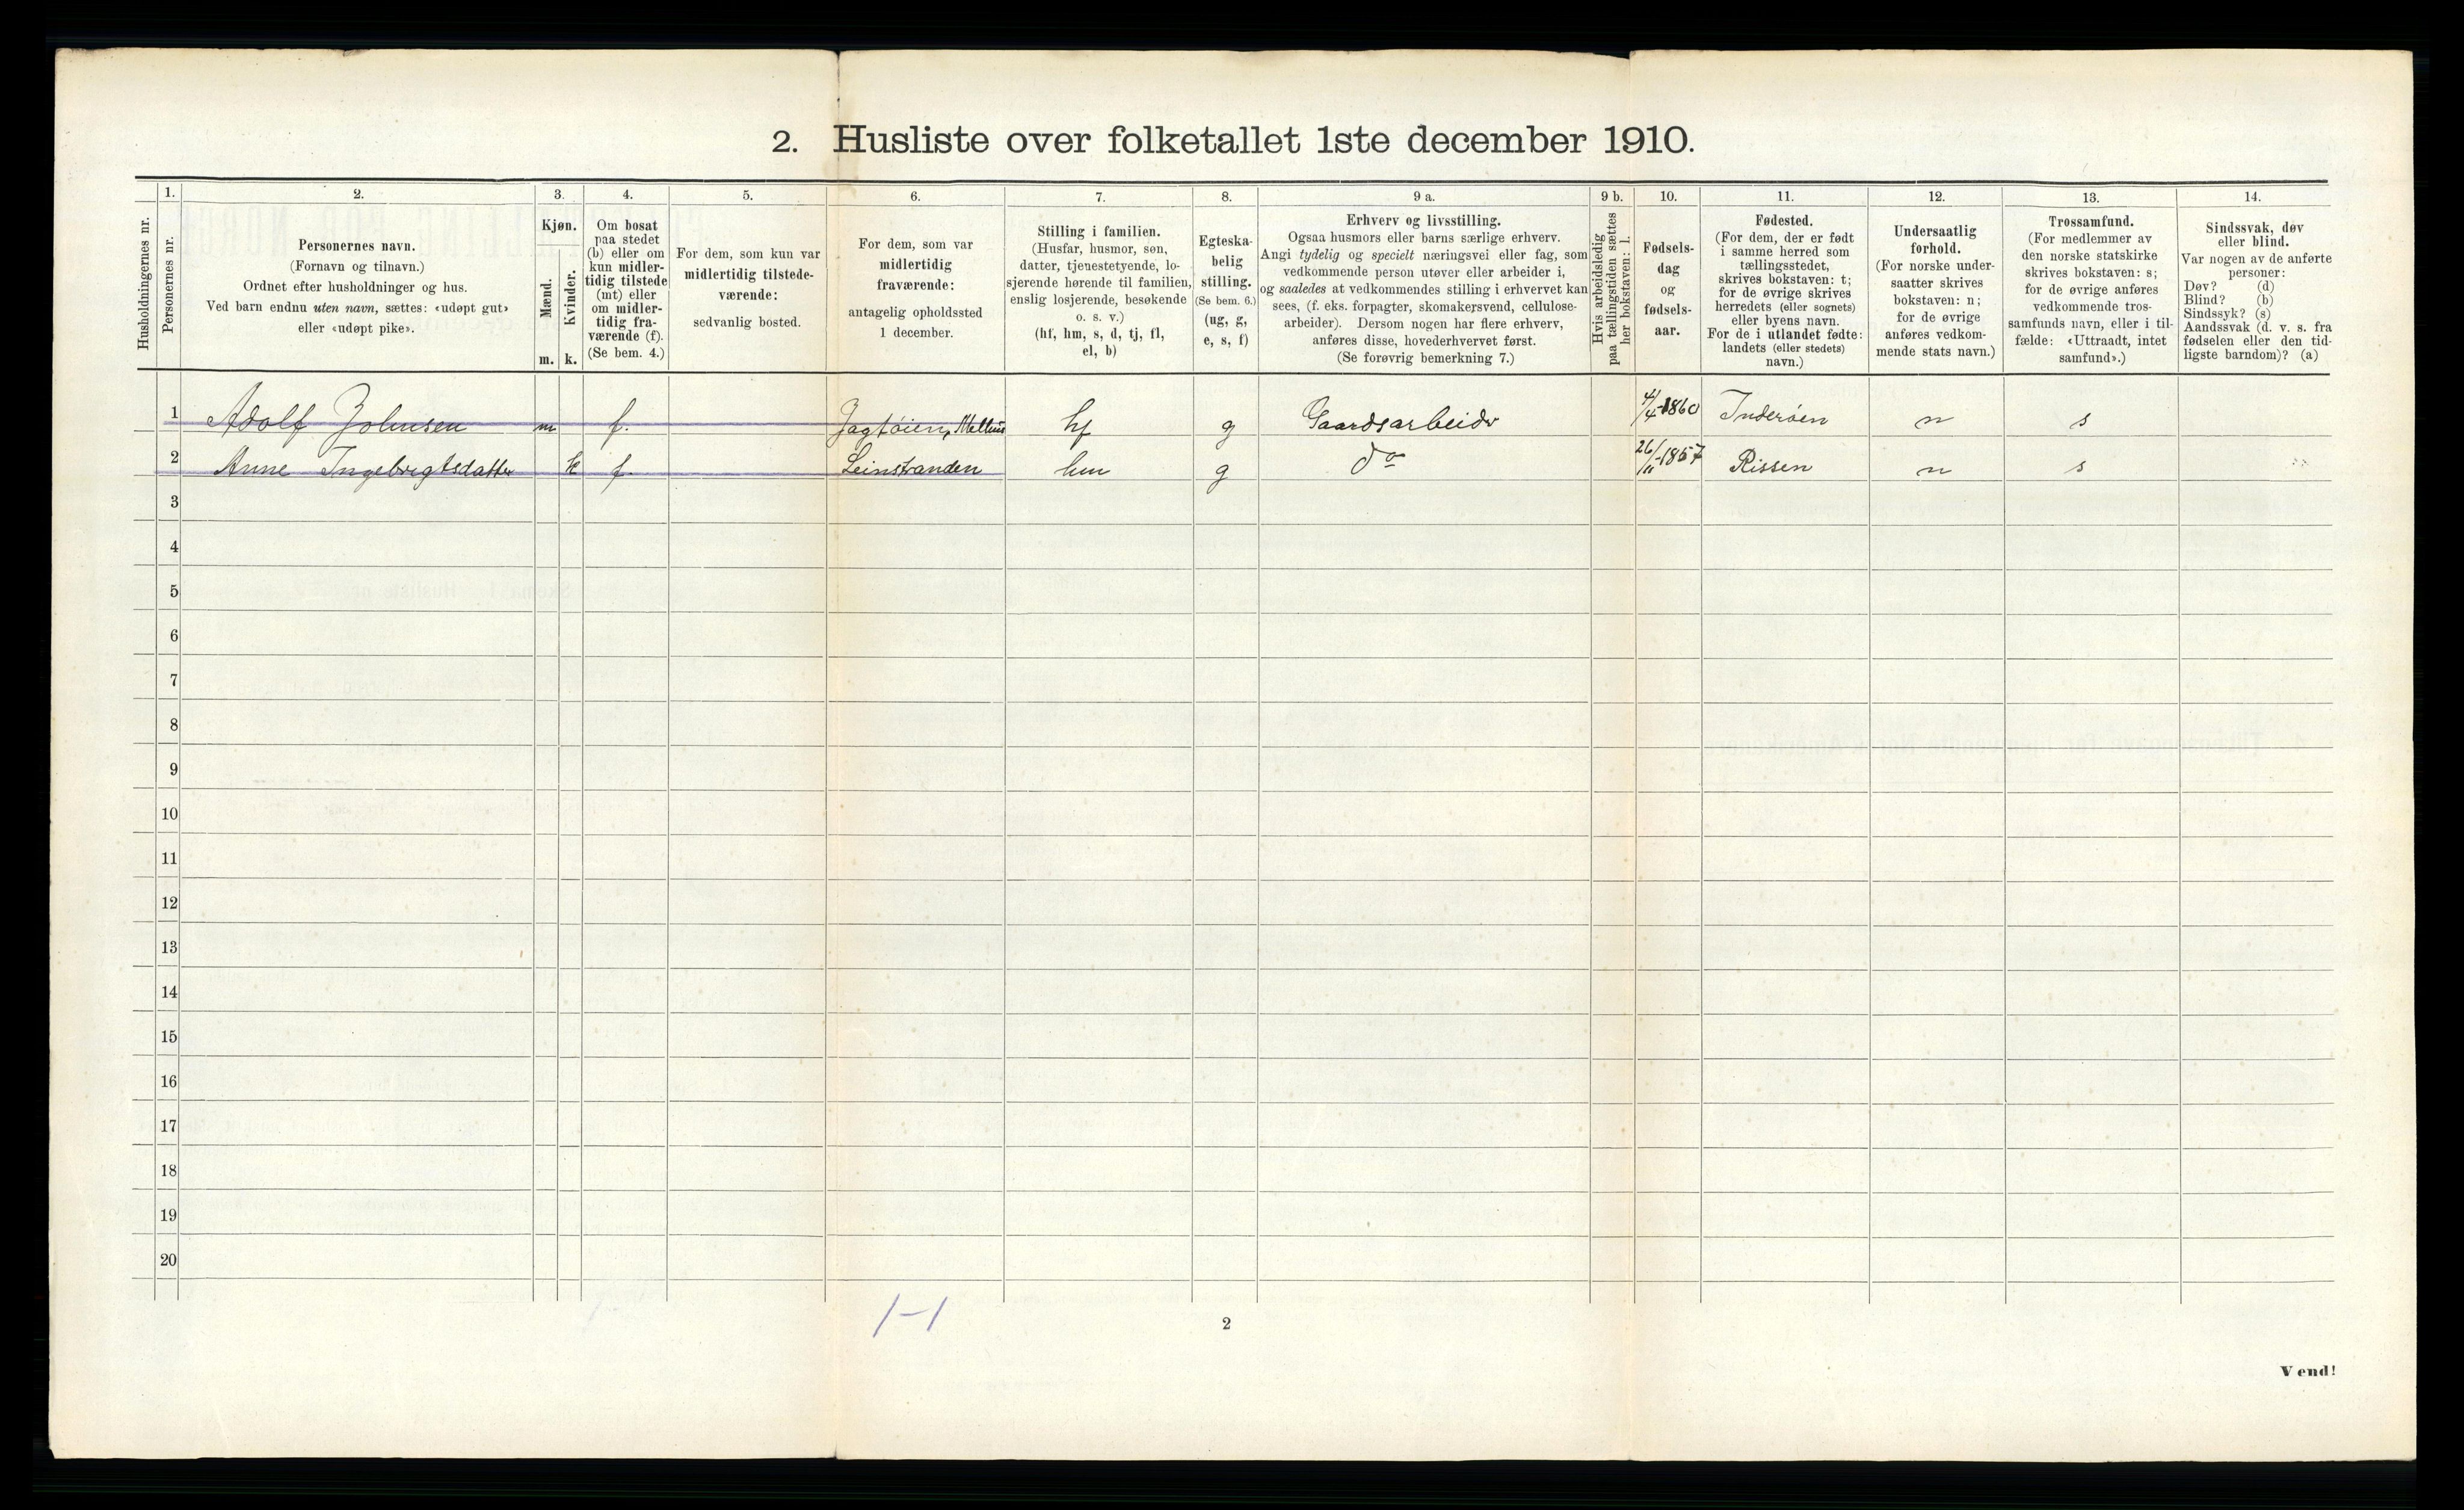 2. Husliste over folketallet 1ste december 1910.
Husholdningernes nr.
1.
Personernes nr.
2.
Personernes navn.
(Fornavn og tilnavn.)
Ordnet efter husholdninger og hus.
Ved barn endnu uten navn, sættes: «udøpt gut»
eller «udøpt pike».
3.
Kjøn.
Mænd.
m.
Kvinder.
k.
4.
Om bosat
paa stedet
(b) eller om
kun midler-
tidig tilstede
(mt) eller
om midler-
tidig fra-
værende (f).
(Se bem. 4.)
5.
For dem, som kun var
midlertidig tilstede-
værende:
sedvanlig bosted.
6.
For dem, som var
midlertidig
fraværende:
antagelig opholdssted
1 december.
7.
Stilling i familien.
(Husfar, husmor, søn,
datter, tjenestetyende, lo-
sjerende hørende til familien,
enslig losjerende, besøkende
o. s. v.)
(hf, hm, s, d, tj, fl,
el, b)
8.
Egteska-
belig
stilling.
(Se bem. 6.)
(ug, g,
e, s, f)
9 a.
Erhverv og livsstilling.
Ogsaa husmors eller barns særlige erhverv.
Angi tydelig og specielt næringsvei eller fag, som
vedkommende person utøver eller arbeider i,
og saaledes at vedkommendes stilling i erhvervet kan
sees, (f. eks. forpagter, skomakersvend, cellulose-
arbeider). Dersom nogen har flere erhverv,
anføres disse, hovederhvervet først.
(Se forøvrig bemerkning 7.)
9 b.
Hvis arbeidsledig
paa tællingstiden sættes
her bokstaven: l.
10.
Fødsels-
dag
og
fødsels-
aar.
11.
Fødested.
(For dem, der er født
i samme herred som
tællingsstedet,
skrives bokstaven: t;
for de øvrige skrives
herredets (eller sognets)
eller byens navn.
For de i utlandet fødte:
landets (eller stedets)
navn.)
12.
Undersaatlig
forhold.
(For norske under-
saatter skrives
bokstaven: n;
for de øvrige
anføres vedkom-
mende stats navn.)
13.
Trossamfund.
(For medlemmer av
den norske statskirke
skrives bokstaven: s;
for de øvrige anføres
vedkommende tros-
samfunds navn, eller i til-
fælde: «Uttraadt, intet
samfund».)
14.
Sindssvak, døv
eller blind.
Var nogen av de anførte
personer:
Døv? (d)
Blind? (b)
Sindssyk? (s)
Aandssvak (d. v. s. fra
fødselen eller den tid-
ligste barndom)? (a)
1 Adolf Johnsen m f. Jagtøien, Melhus hf g Gaardsarbeider 4/4-1860 Inderøen n s
2 Anne Ingebrigtsdatter k f. Leinstranden hm g do 26/11-1857 Rissen n s
3
4
5
6
7
8
9
10
11
12
13
14
15
16
17
18
19
20
1-1
2
Vend!